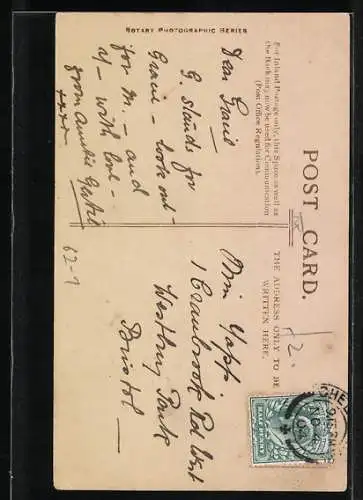 ROTARY PHOTOGRAPHIC SERIES
POST CARD.
For Inland Postage only, this Space as well as
the Back may now be used for Communication
(Post Office Regulation).
THE ADDRESS ONLY TO BE
WRITTEN HERE.
Dear Gracie
G stands for
Gracie - look out
for M. - and
y - with love -
from Auntie
xxxx
62-1
/2.
Miss Yapp
1 Cranbrook Rd West
Westbury Park
Bristol
HALF PENNY